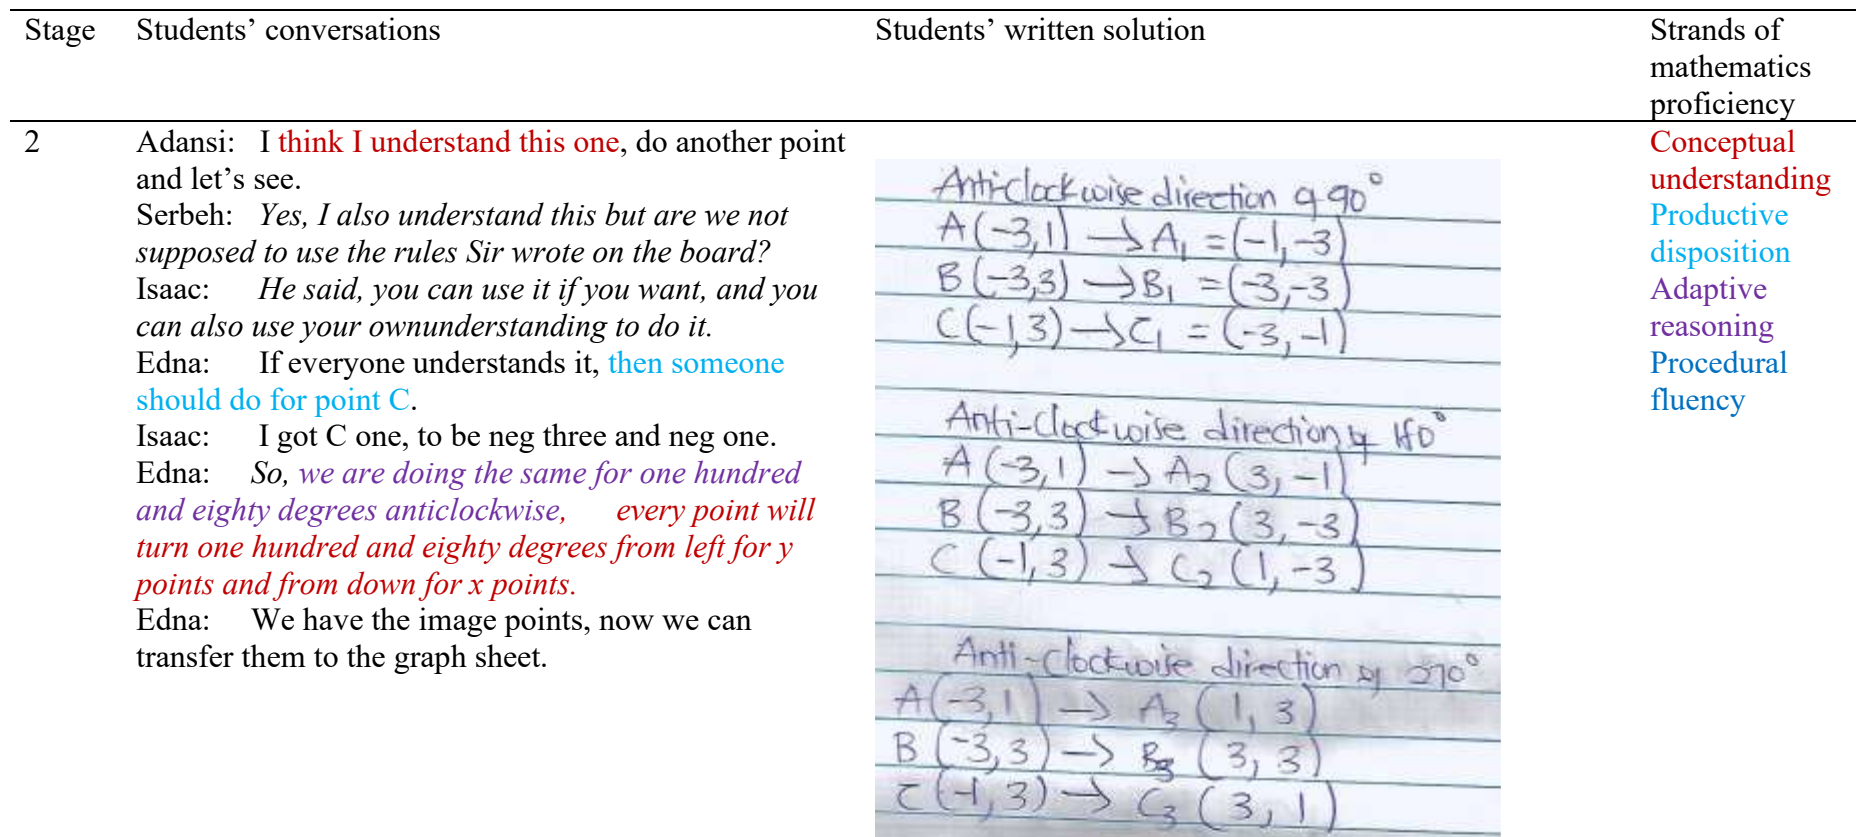 Stage Students' conversations Students' written solution Strands of
mathematics
proficiency
2 Adansi: I think I understand this one, do another point
and let's see.
Serbeh: Yes, I also understand this but are we not
supposed to use the rules Sir wrote on the board?
Isaac: He said, you can use it if you want, and you
can also use your ownunderstanding to do it.
Edna: If everyone understands it, then someone
should do for point C.
Isaac: I got C one, to be neg three and neg one.
Edna: So, we are doing the same for one hundred
and eighty degrees anticlockwise, every point will
turn one hundred and eighty degrees from left for y
points and from down for x points.
Edna: We have the image points, now we can
transfer them to the graph sheet.
Anti-clockwise direction of 90°
A(-3,1) → A₁ = (-1,-3)
B(-3,3) → B₁ = (-3,-3)
C(-1,3) → C₁ = (-3,-1)
Anti-Clockwise direction of 180°
A(-3,1) → A₂ (3,-1)
B(-3,3) → B₂ (3,-3)
C(-1,3) → C₂ (1,-3)
Anti-clockwise direction of 270°
A(-3,1) → A₃ (1, 3)
B(-3,3) → B₃ (3, 3)
C(-1,3) → C₃ (3, 1)
Conceptual
understanding
Productive
disposition
Adaptive
reasoning
Procedural
fluency